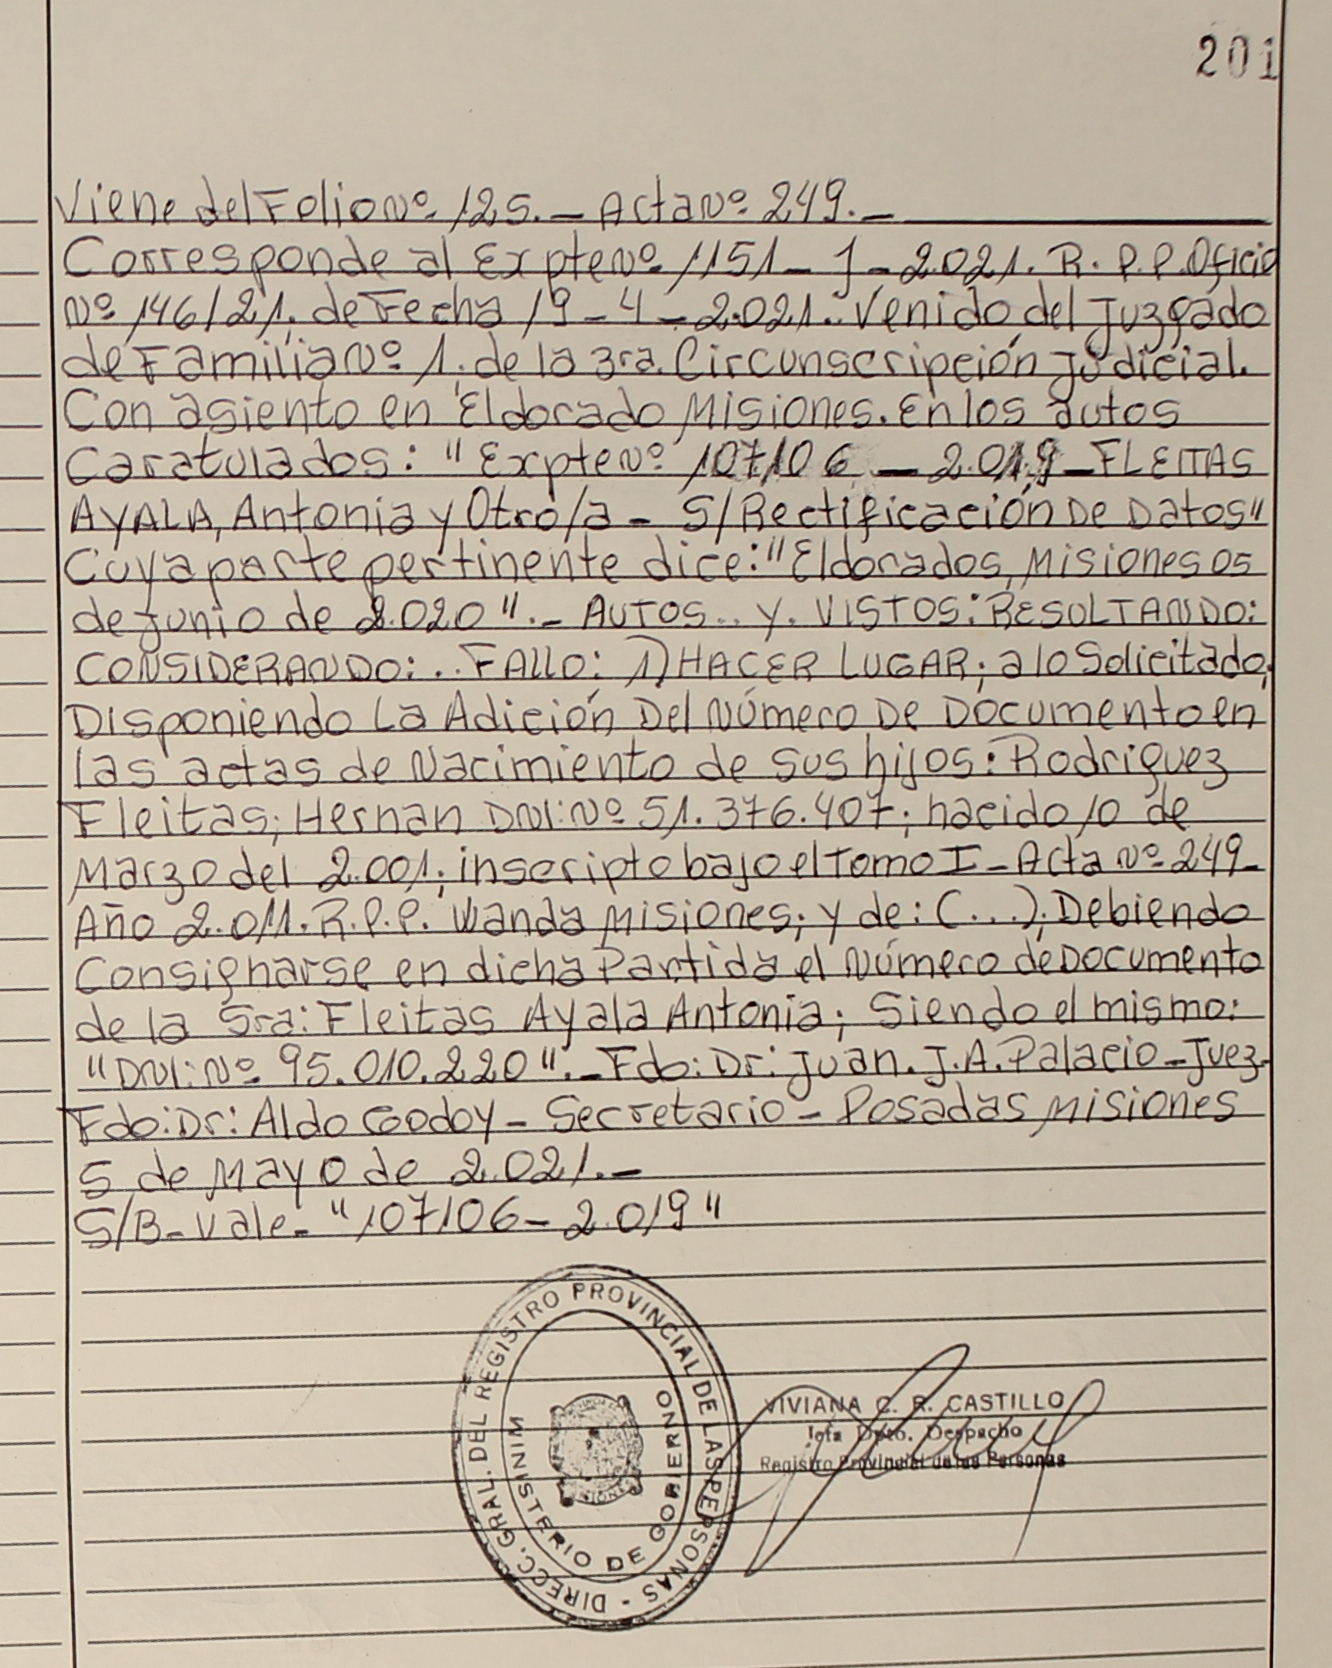 201
Viene del Folio Nº 125.- Acta Nº 249.-
Corresponde al Expte Nº 1151-J-2.021. R.P.P. Oficio
Nº 146/21. de Fecha 19-4-2.021. Venido del Juzgado
de Familia Nº 1. de la 3ra. Circunscripción Judicial.
Con asiento en Eldorado Misiones. En los autos
Caratulados: "Expte Nº 107106 - 2.019 - FLEITAS
AYALA, Antonia y Otro/a - S/Rectificación De Datos"
Cuya parte pertinente dice: "Eldorados, Misiones 05
de Junio de 2.020".- AUTOS.. Y. VISTOS: RESULTANDO:
CONSIDERANDO:.. FALLO: 1) HACER LUGAR; a lo Solicitado;
Disponiendo La Adición Del Número De Documento en
las actas de Nacimiento de sus hijos: Rodriguez
Fleitas; Hernan DNI: Nº 51.376.407; nacido 10 de
Marzo del 2.001; inscripto bajo el Tomo I - Acta Nº 249-
Año 2.011. R.P.P. Wanda Misiones; y de: (...); Debiendo
Consignarse en dicha Partida el Número de Documento
de la Sra: Fleitas Ayala Antonia; Siendo el mismo:
"DNI: Nº 95.010.220".- Fdo: Dr: Juan. J.A. Palacio - Juez-
Fdo: Dr: Aldo Godoy - Secretario - Posadas Misiones
5 de Mayo de 2.021.-
S/B - Vale - "107106 - 2.019"
DIRECC. GRAL. DEL REGISTRO PROVINCIAL DE LAS PERSONAS -
MINISTERIO DE GOBIERNO
VIVIANA C. R. CASTILLO
Jefa Dpto. Despacho
Registro Provincial de las Personas